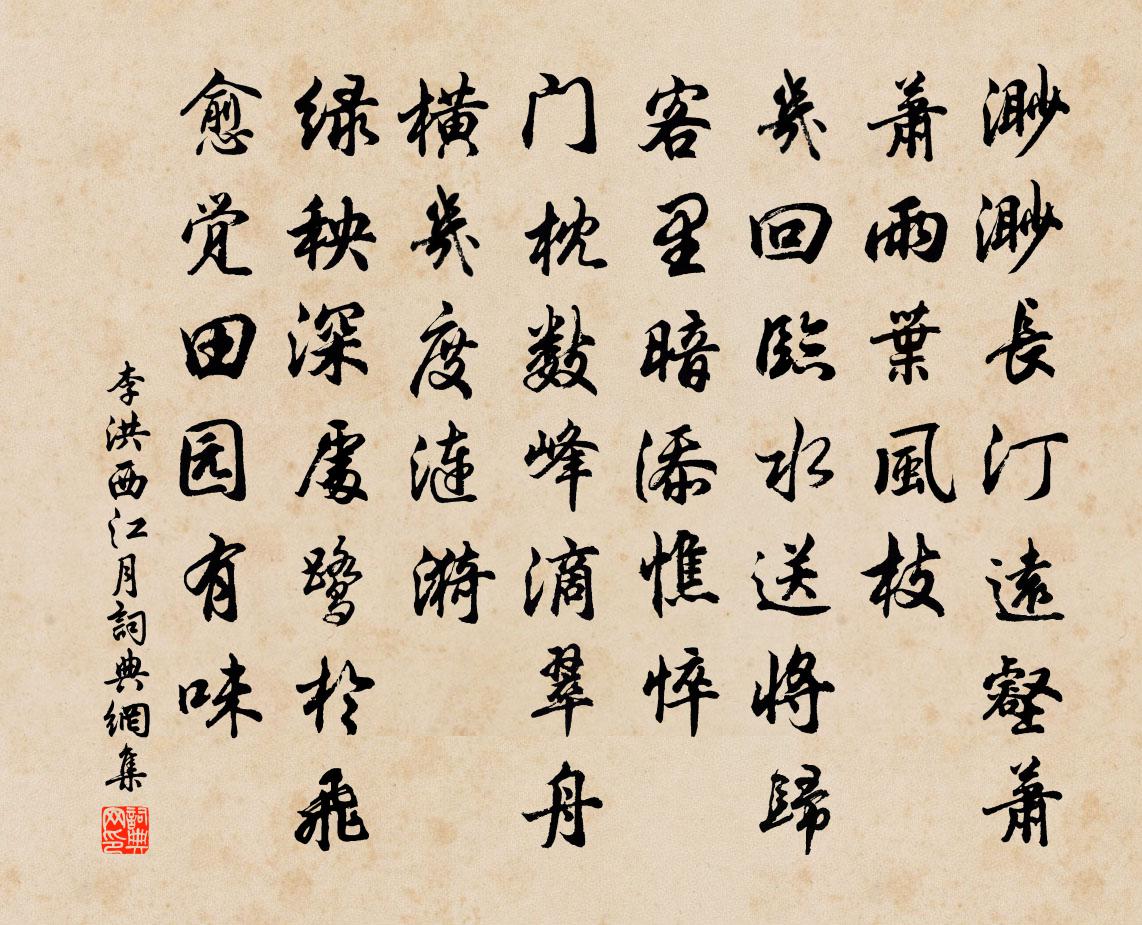 渺渺長汀遠壑蕭
蕭雨葉風枝
幾回臨水送將歸
客里暗添憔悴
门枕數峰滴翠舟
橫幾度漣漪
绿秧深處鷺於飛
愈觉田园有味
李洪西江月詞典網集
詞典网印